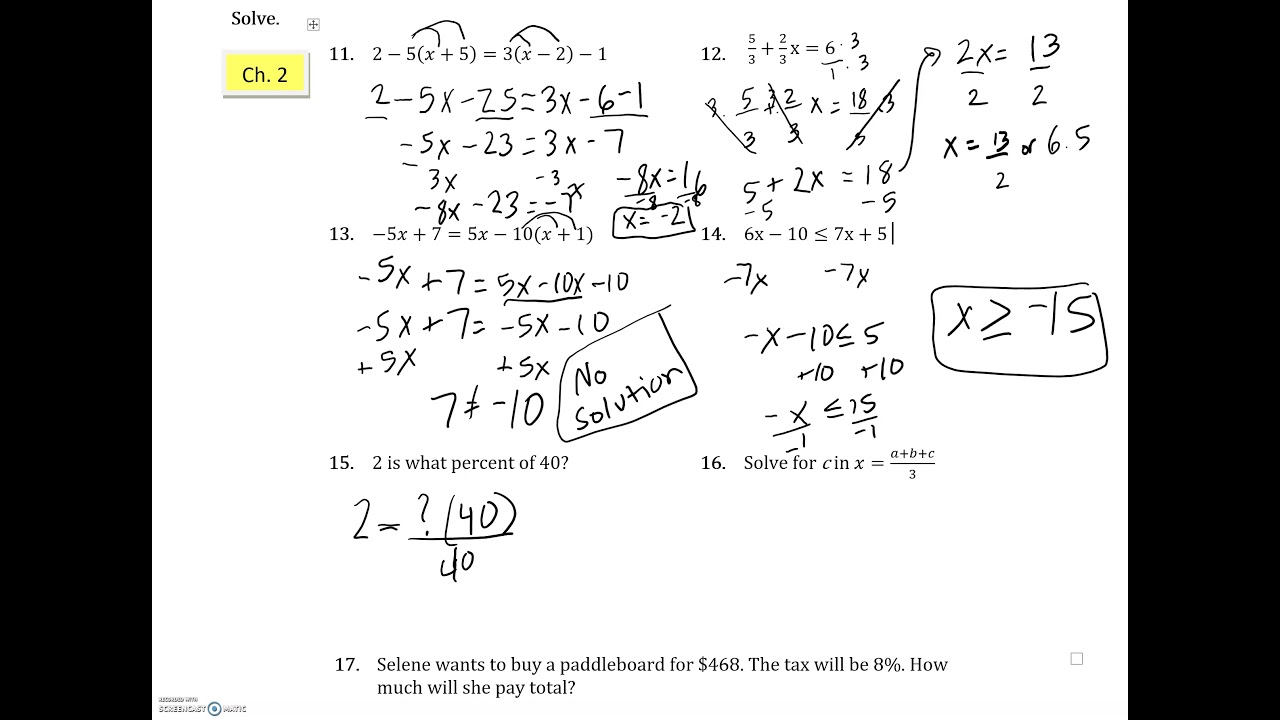 Solve.
Ch. 2
11. 2 − 5(x + 5) = 3(x − 2) − 1
2 − 5x − 25 = 3x − 6 − 1
−5x − 23 = 3x − 7
3x −3
−8x − 23 = −7
−8x = 16
−8 −8
x = −2
12. 5/3 + 2/3 x = 6 · 3
1 · 3
3 · 5/3 + 3 · 2/3 x = 18/3 · 3
5 + 2x = 18
−5 −5
2x = 13
2 2
x = 13/2 or 6.5
13. −5x + 7 = 5x − 10(x + 1)
−5x + 7 = 5x − 10x − 10
−5x + 7 = −5x − 10
+5x +5x
7 ≠ −10
No
solution
14. 6x − 10 ≤ 7x + 5
−7x −7x
−x − 10 ≤ 5
+10 +10
−x ≤ 15
−1 −1
x ≥ −15
15. 2 is what percent of 40?
2 = ? (40)
40
16. Solve for c in x = a+b+c/3
17. Selene wants to buy a paddleboard for $468. The tax will be 8%. How
much will she pay total?
RECORDED WITH
SCREENCAST MATIC